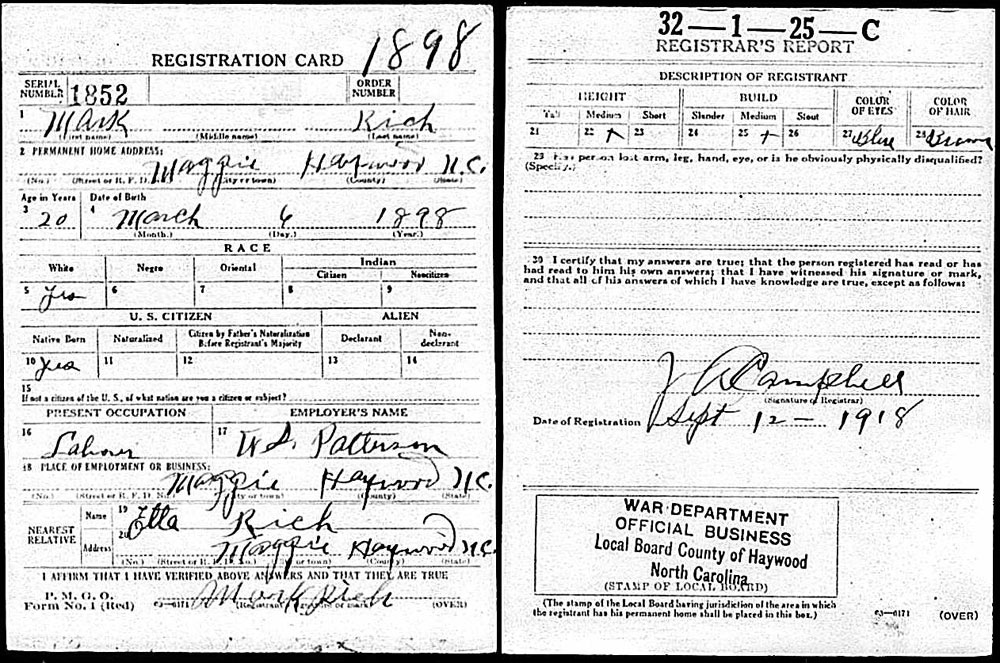 REGISTRATION CARD 1898
SERIAL NUMBER 1852 ORDER NUMBER
1 Mark Rich
(First name) (Middle name) (Last name)
2 PERMANENT HOME ADDRESS:
Maggie Haywood N.C.
(No.) (Street or R. F. D. No.) (City or town) (County) (State)
Age in Years Date of Birth
3 20 4 March 6 1898
(Month.) (Day.) (Year.)
RACE
White Negro Oriental Indian
Citizen Noncitizen
5 Yes 6 7 8 9
U. S. CITIZEN ALIEN
Native Born Naturalized Citizen by Father's Naturalization Before Registrant's Majority Declarant Non-declarant
10 Yes 11 12 13 14
15
If not a citizen of the U. S., of what nation are you a citizen or subject?
PRESENT OCCUPATION EMPLOYER'S NAME
16 Laborer 17 W.S. Patterson
18 PLACE OF EMPLOYMENT OR BUSINESS:
Maggie Haywood N.C.
(No.) (Street or R. F. D. No.) (City or town) (County) (State)
NEAREST RELATIVE Name 19 Etta Rich
Address 20 Maggie Haywood N.C.
(No.) (Street or R. F. D. No.) (City or town) (County) (State)
I AFFIRM THAT I HAVE VERIFIED ABOVE ANSWERS AND THAT THEY ARE TRUE
P. M. G. O.
Form No. 1 (Red) 63—6171 Mark Rich
(Registrant's signature or mark) (OVER)
32—1—25—C
REGISTRAR'S REPORT
DESCRIPTION OF REGISTRANT
HEIGHT BUILD COLOR OF EYES COLOR OF HAIR
Tall Medium Short Slender Medium Stout
21 22 x 23 24 25 x 26 27 Blue 28 Brown
29 Has person lost arm, leg, hand, eye, or is he obviously physically disqualified?
(Specify.)
30 I certify that my answers are true; that the person registered has read or has
had read to him his own answers; that I have witnessed his signature or mark,
and that all of his answers of which I have knowledge are true, except as follows:
Campbell
(Signature of Registrar)
Date of Registration Sept 12 — 1918
WAR DEPARTMENT
OFFICIAL BUSINESS
Local Board County of Haywood
North Carolina
(STAMP OF LOCAL BOARD)
(The stamp of the Local Board having jurisdiction of the area in which
the registrant has his permanent home shall be placed in this box.)
63—6171 (OVER)